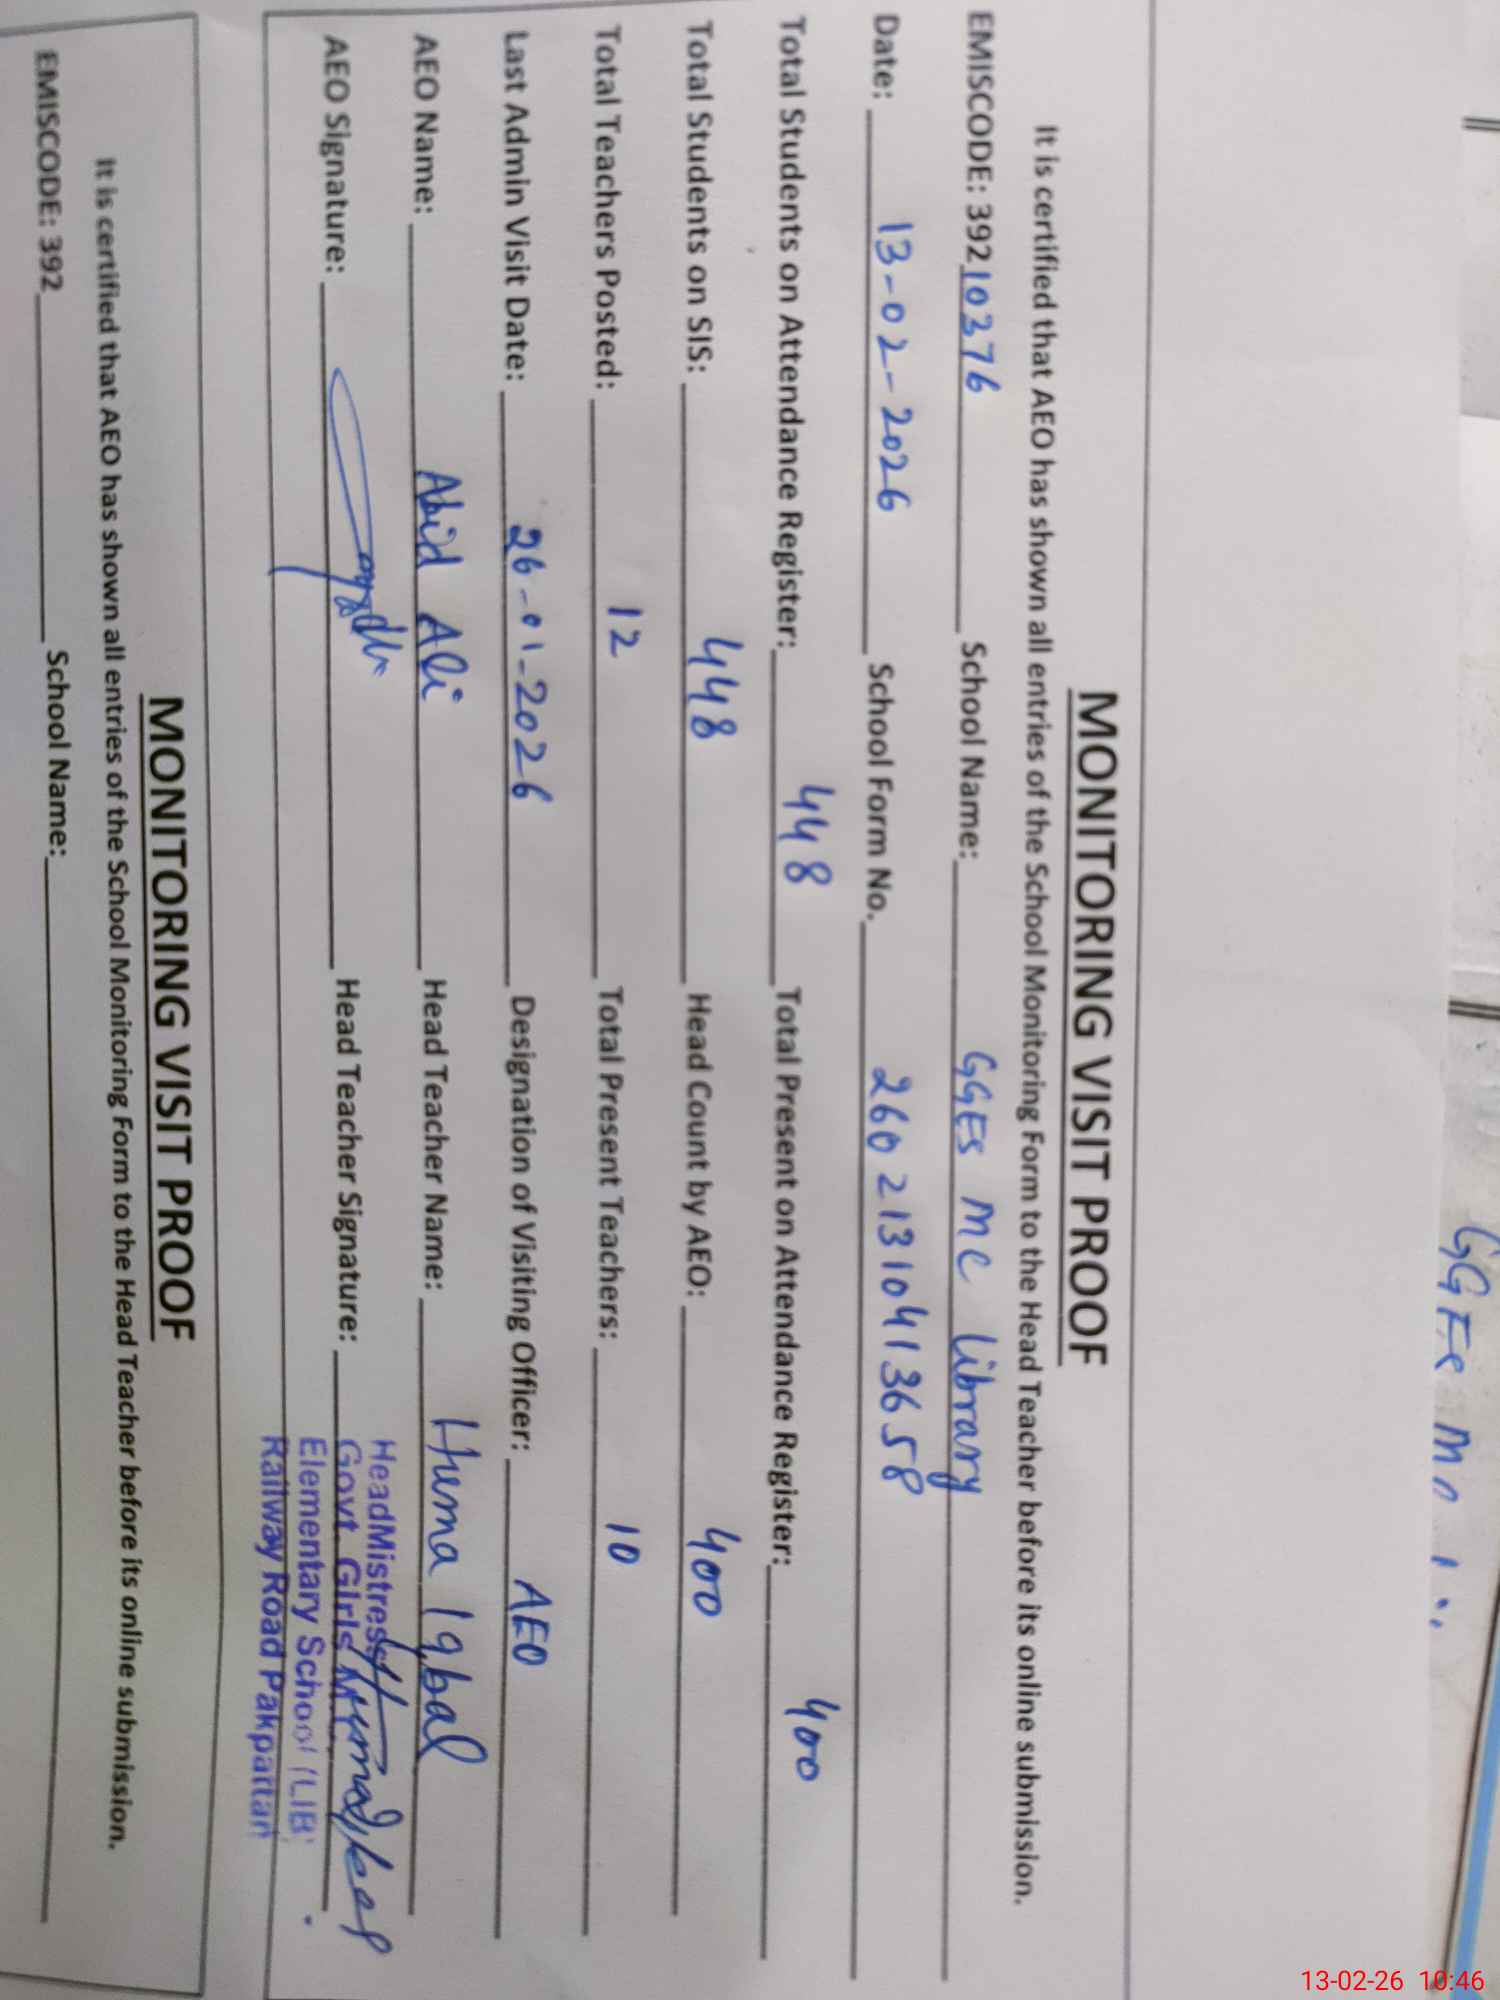 GGES MC
MONITORING VISIT PROOF
It is certified that AEO has shown all entries of the School Monitoring Form to the Head Teacher before its online submission.
EMISCODE: 39210376 School Name: GGES MC Library
Date: 13-02-2026 School Form No. 26021310413658
Total Students on Attendance Register: 448 Total Present on Attendance Register: 400
Total Students on SIS: 448 Head Count by AEO: 400
Total Teachers Posted: 12 Total Present Teachers: 10
Last Admin Visit Date: 26-01-2026 Designation of Visiting Officer: AEO
AEO Name: Abid Ali Head Teacher Name: Huma Iqbal
AEO Signature: Head Teacher Signature:
HeadMistress
Govt. Girls
Elementary School (LIB)
Railway Road Pakpattan
MONITORING VISIT PROOF
It is certified that AEO has shown all entries of the School Monitoring Form to the Head Teacher before its online submission.
EMISCODE: 392 School Name:
13-02-26 10:46